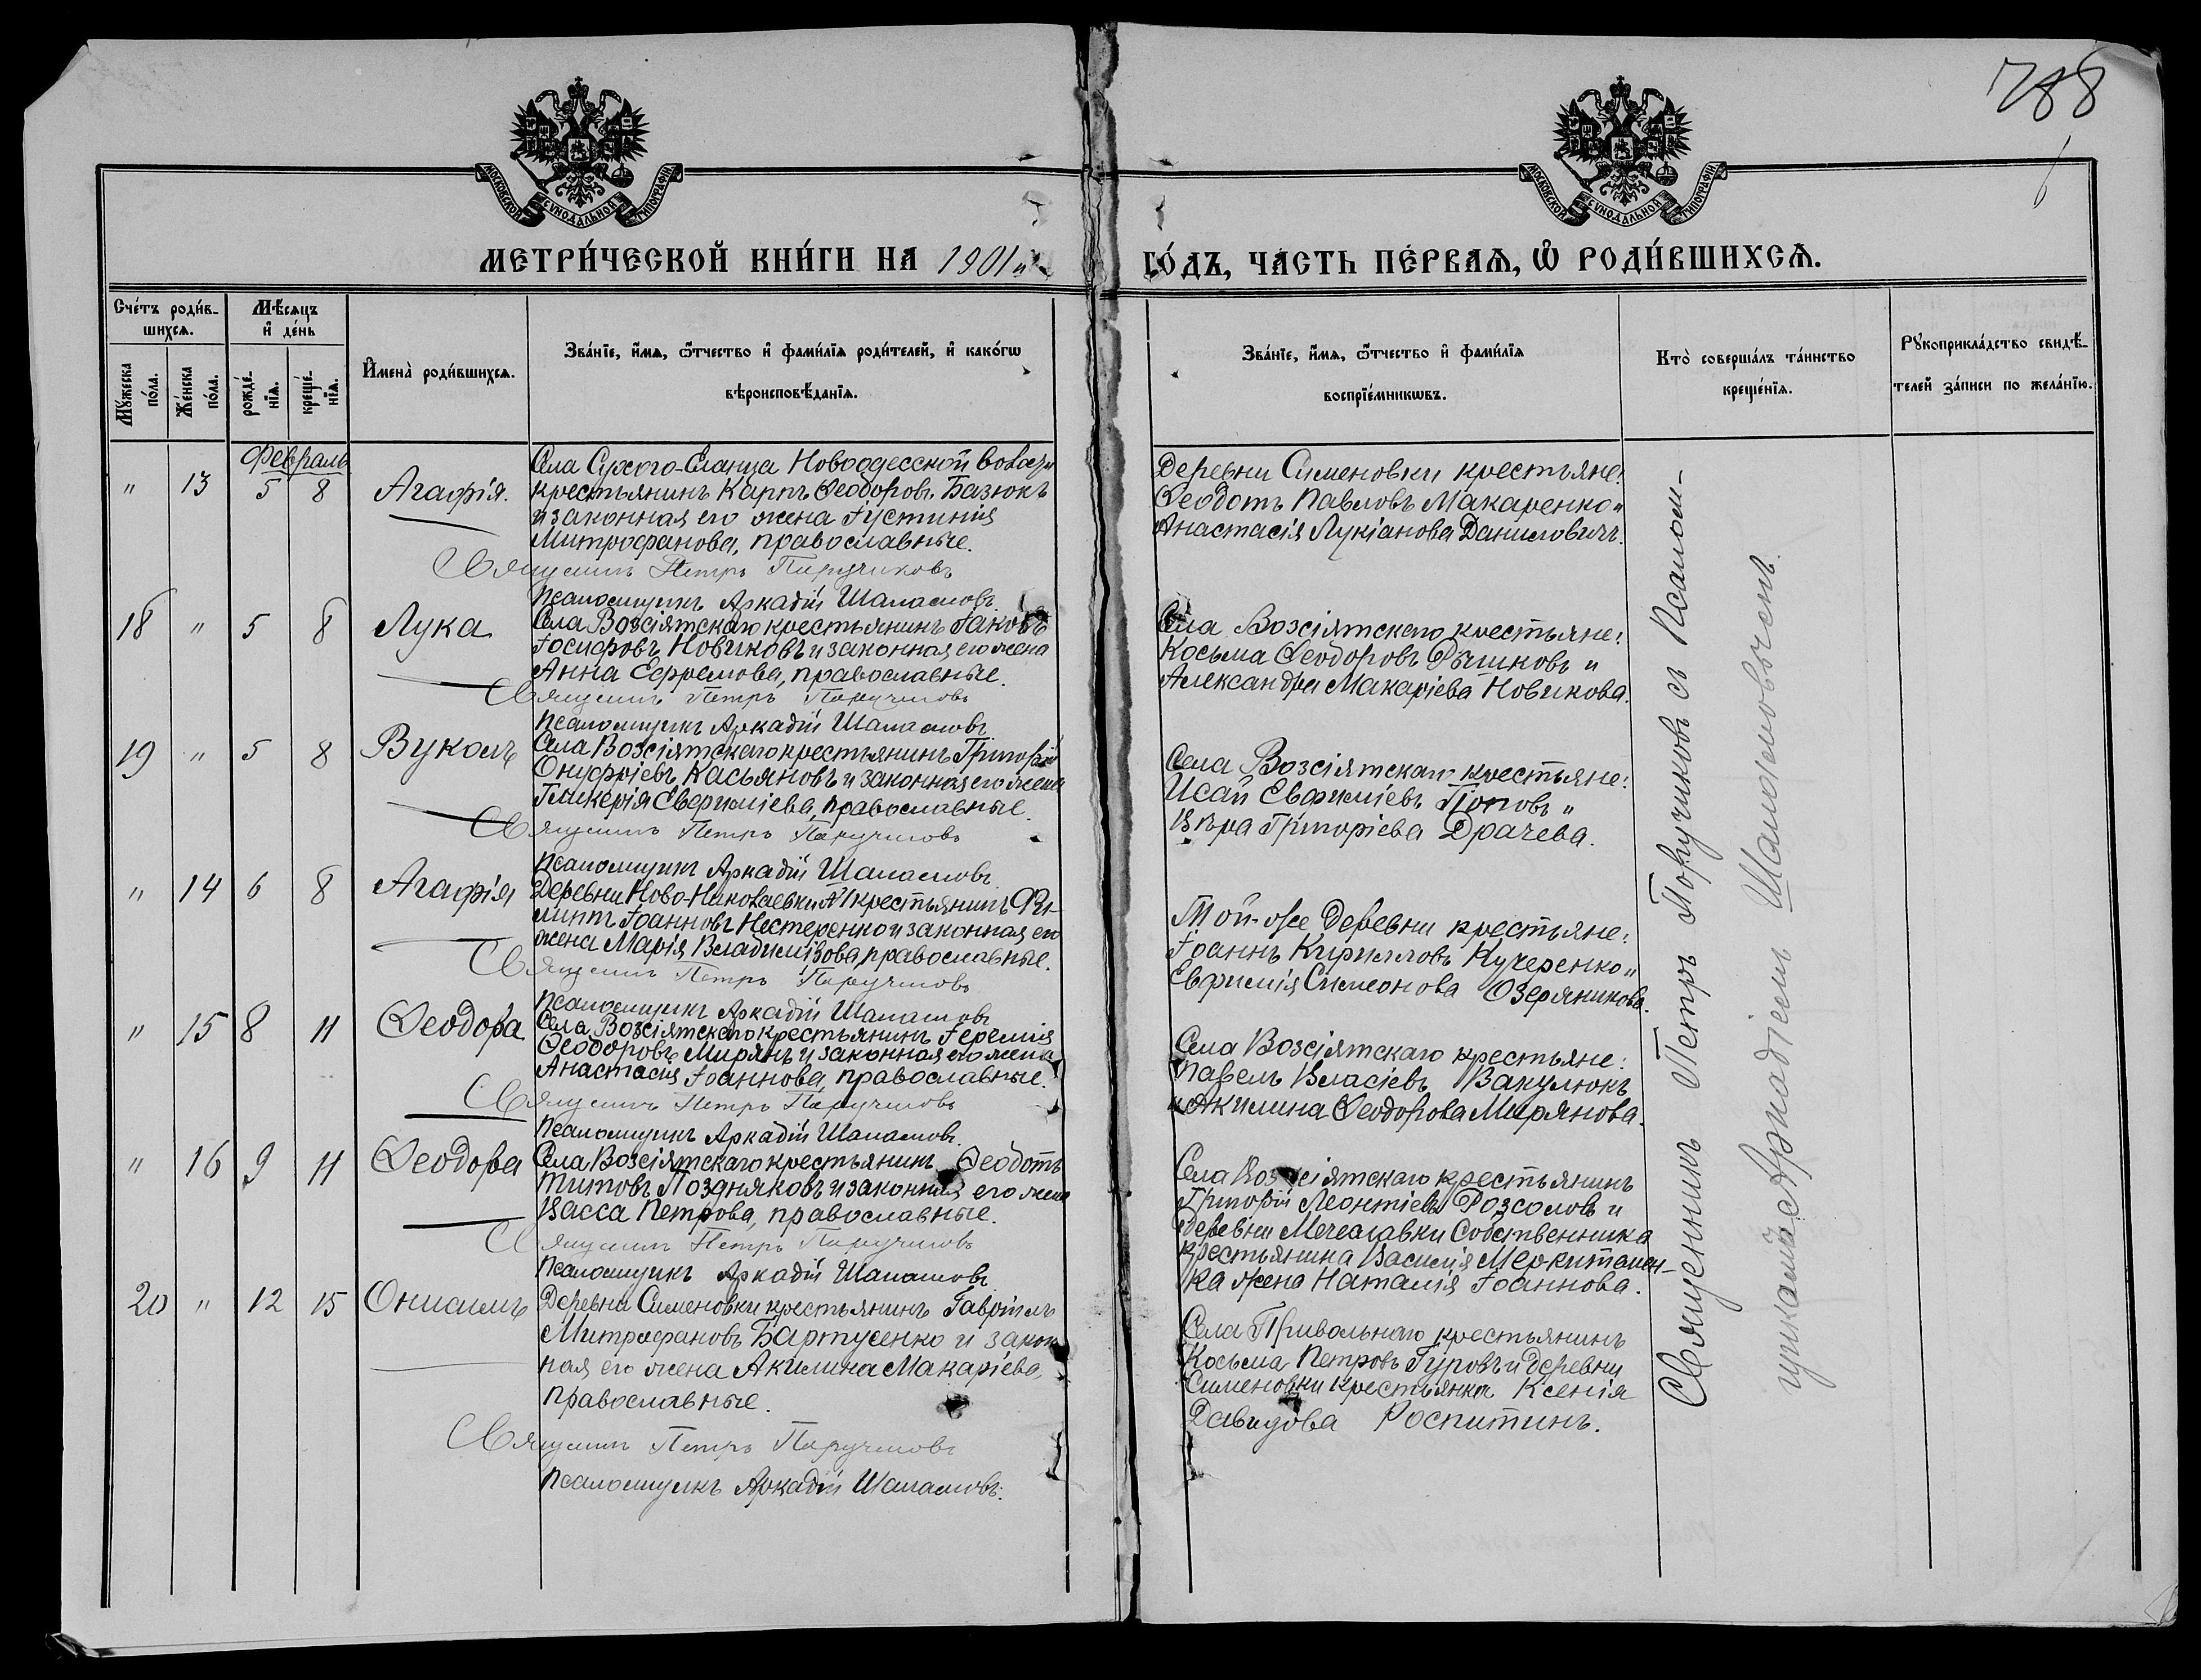 788
МОСКОВСКОЙ СѴНОДАЛЬНОЙ ТИПОГРАФІИ
МОСКОВСКОЙ СѴНОДАЛЬНОЙ ТИПОГРАФІИ
МЕТРИ́ЧЕСКОЙ КНИ́ГИ НА 1901й
ГО́ДЪ, ЧА́СТЬ ПЕ́РВАѦ, Ѡ҆ РОДИ́ВШИХСѦ.
Сче́тъ роди́в-
шихсѧ.
Мꙋ́жеска по́ла.
Же́нска по́ла.
Мѣ́сѧцъ и҆ де́нь
рожде́-нїѧ.
креще́-нїѧ.
И҆мена̀ роди́вшихсѧ.
Зва́нїе, и҆́мѧ, ѻ҆́тчество и҆ фами́лїѧ роди́телей, и҆ како́гѡ
вѣроисповѣ́данїѧ.
Зва́нїе, и҆́мѧ, ѻ҆́тчество и҆ фами́лїѧ
воспрїе́мникѡвъ.
Кто̀ соверша́лъ та́инство
креще́нїѧ.
Рꙋкоприкла́дство свидѣ́-
телей за́писи по жела́нїю.
Февраль
" 13 5 8 Агафія.
Села Сухого-Еланца Новоодесской волости
крестьянинъ Карпъ Ѳеодоровъ Базюкъ
и законная его жена Іустинія
Митрофанова, православные.
Священникъ Петръ Поручиковъ
Псаломщикъ Аркадій Шаламовъ.
Деревни Сименовки крестьяне:
Ѳеодотъ Павловъ Макаренко и
Анастасія Лукіанова Даниловичъ.
18 " 5 8 Лука
Села Возсіятскаго крестьянинъ Іаковъ
Іосифовъ Новиковъ и законная его жена
Анна Ефремова, православные.
Священникъ Петръ Поручиковъ
Псаломщикъ Аркадій Шаламовъ.
Села Возсіятскаго крестьяне:
Косьма Ѳеодоровъ Рѣшиковъ и
Александра Макаріева Новикова.
19 " 5 8 Вуколъ
Села Возсіятскаго крестьянинъ Григорій
Онуфріевъ Касьяновъ и законная его жена
Гликерія Евфиміева, православные.
Священникъ Петръ Поручиковъ
Псаломщикъ Аркадій Шаламовъ.
Села Возсіятскаго крестьяне:
Исай Евфиміевъ Поповъ и
Вѣра Григоріева Драчева.
" 14 6 8 Агафія
Деревни Ново-Николаевки крестьянинъ Фи-
липпъ Іоанновъ Нестеренко и законная его
жена Марія Владимірова, православные.
Священникъ Петръ Поручиковъ
Псаломщикъ Аркадій Шаламовъ
Той-же деревни крестьяне:
Іоаннъ Кирилловъ Кучеренко и
Евфимія Симеонова Озерянникова.
" 15 8 11 Ѳеодора
Села Возсіятскаго крестьянинъ Іеремія
Ѳеодоровъ Мирянъ и законная его жена
Анастасія Іоаннова, православные.
Священникъ Петръ Поручиковъ
Псаломщикъ Аркадій Шаламовъ.
Села Возсіятскаго крестьяне:
Павелъ Власіевъ Вакулюкъ
и Акилина Ѳеодорова Мирянова.
" 16 9 11 Ѳеодора
Села Возсіятскаго крестьянинъ Ѳеодотъ
Титовъ Поздняковъ и законная его жена
Васса Петрова, православные.
Священникъ Петръ Поручиковъ
Псаломщикъ Аркадій Шаламовъ
Села Возсіятскаго крестьянинъ
Григорій Леонтіевъ Розсоловъ и
деревни Мечеславки собственника
крестьянина Василія
жена Наталія Іоаннова.
20 " 12 15 Онисимъ
Деревни Сименовки крестьянинъ Гавріилъ
Митрофановъ Бартусенко и закон
ная его жена Акилина Макаріева,
православные.
Священникъ Петръ Поручиковъ
Псаломщикъ Аркадій Шаламовъ.
Села Привольнаго крестьянинъ
Косьма Петровъ Гуровъ и деревни
Сименовки крестьянка Ксенія
Давидова Роспитинъ.
Священникъ Петръ Поручиковъ съ Псалом-
щикомъ Аркадіемъ Шаламовымъ.